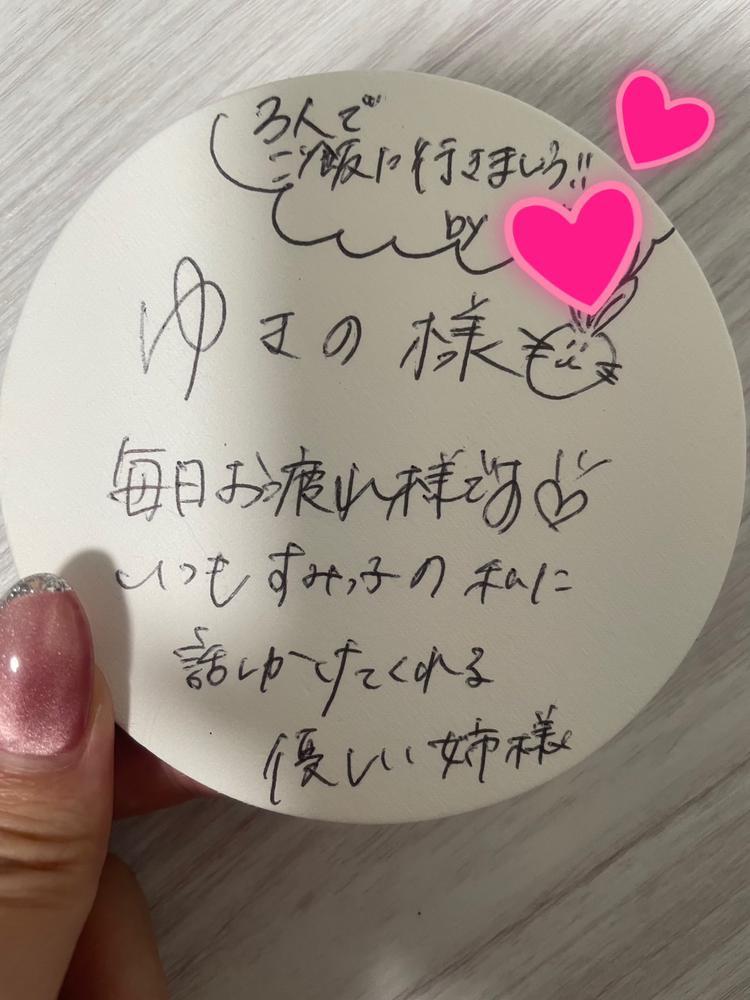 3人で
ご飯に行きましょう!!
by
ゆきの様
毎日お疲れ様です♡
いつもすみっ子の私に
話しかけてくれる
優しい姉様